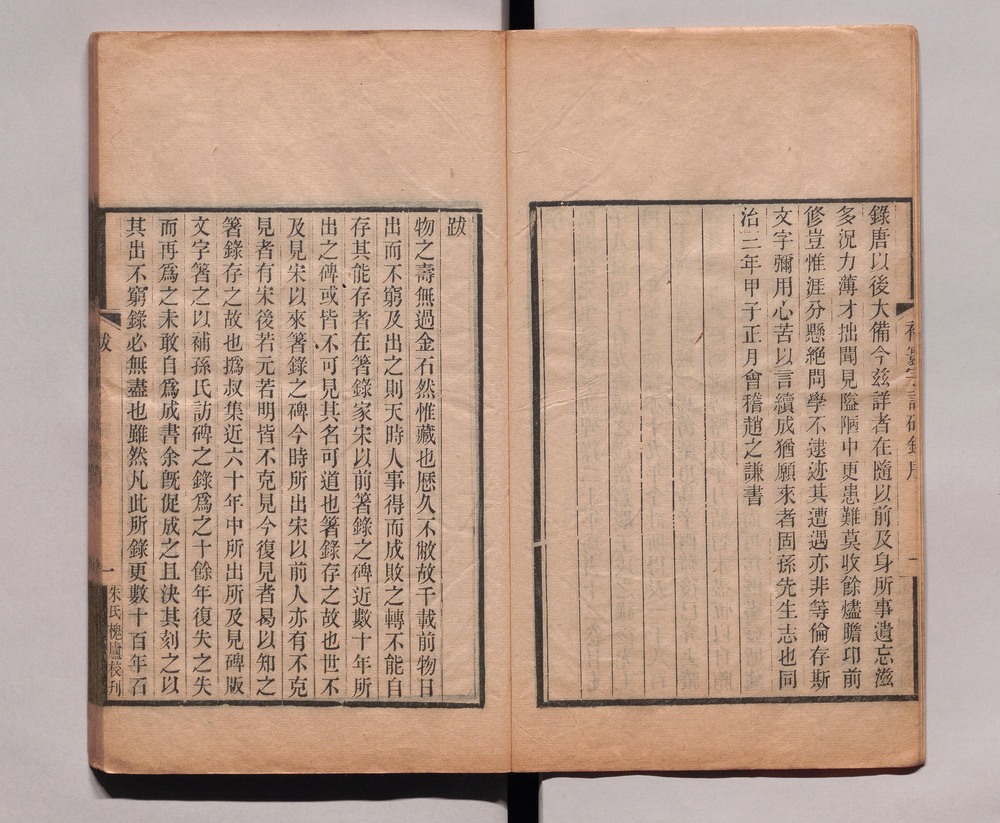 錄唐以後大備今茲詳者在隨以前及身所事遺忘滋
多況力薄才拙聞見隘陋中更患難莫收餘燼瞻卬前
修豈惟涯分懸絕問學不逮迹其遭遇亦非等倫存斯
文字彌用心苦以言續成猶願來者固孫先生志也同
治三年甲子正月會稽趙之謙書
跋
物之壽無過金石然惟藏也厯久不敝故千載前物日
出而不窮及出之則天時人事得而成敗之轉不能自
存其能存者在箸錄家宋以前箸錄之碑近數十年所
出之碑或皆不可見其名可道也箸錄存之故也世不
及見宋以來箸錄之碑今時所出宋以前人亦有不克
見者有宋後若元若明皆不克見今復見者曷以知之
箸錄存之故也撝叔集近六十年中所出所及見碑版
文字箸之以補孫氏訪碑之錄爲之十餘年復失之失
而再爲之未敢自爲成書余旣促成之且決其刻之以
其出不窮錄必無盡也雖然凡此所錄更數十百年石
跋
一
朱氏槐廬校刊